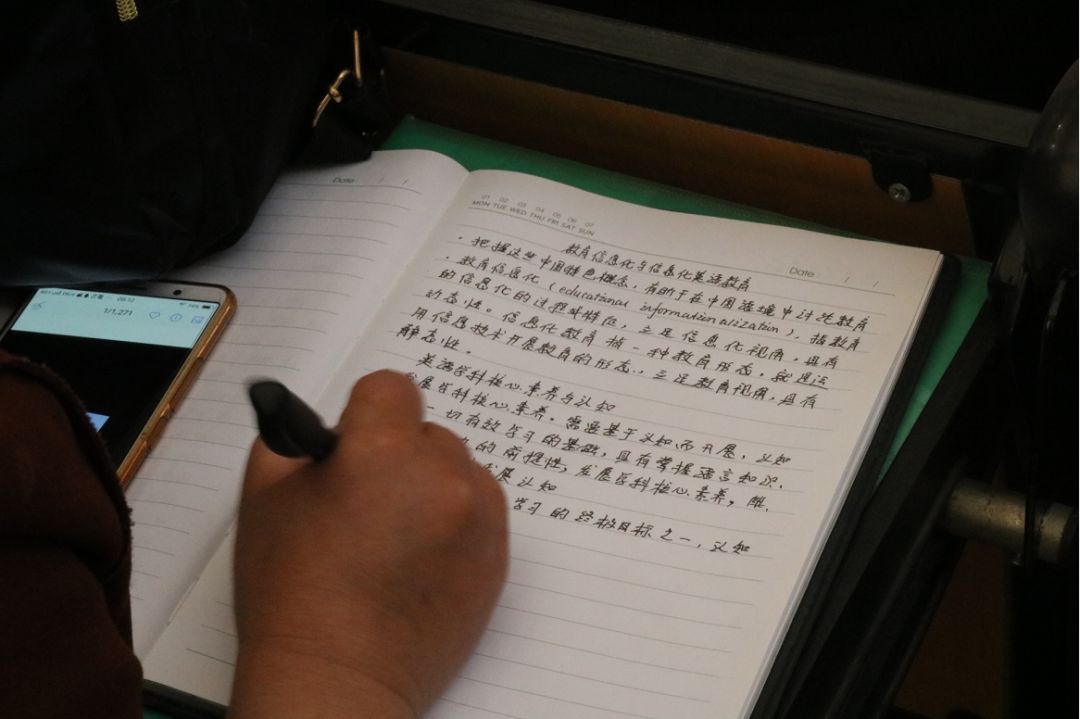 09:12
1/1,271
Date / /
01 02 03 04 05 06 07
MON TUE WED THU FRI SAT SUN
Date / /
教育信息化与信息化英语教育
·把握这些中国特色概念，有助于在中国语境中讨论教育
·教育信息化（educational informationalization），指教育
的信息化的过程或特征，立足信息化视角，具有
动态性。信息化教育指一种教育形态，就是运
用信息技术开展教育的形态，立足教育视角，具有
静态性。
英语学科核心素养与认知
发展学科核心素养，需要基于认知而开展，认知
一切有效学习的基础，具有掌握语言知识、
的前提性，发展学科核心素养，雕
发展认知
学习的终极目标之一，认知